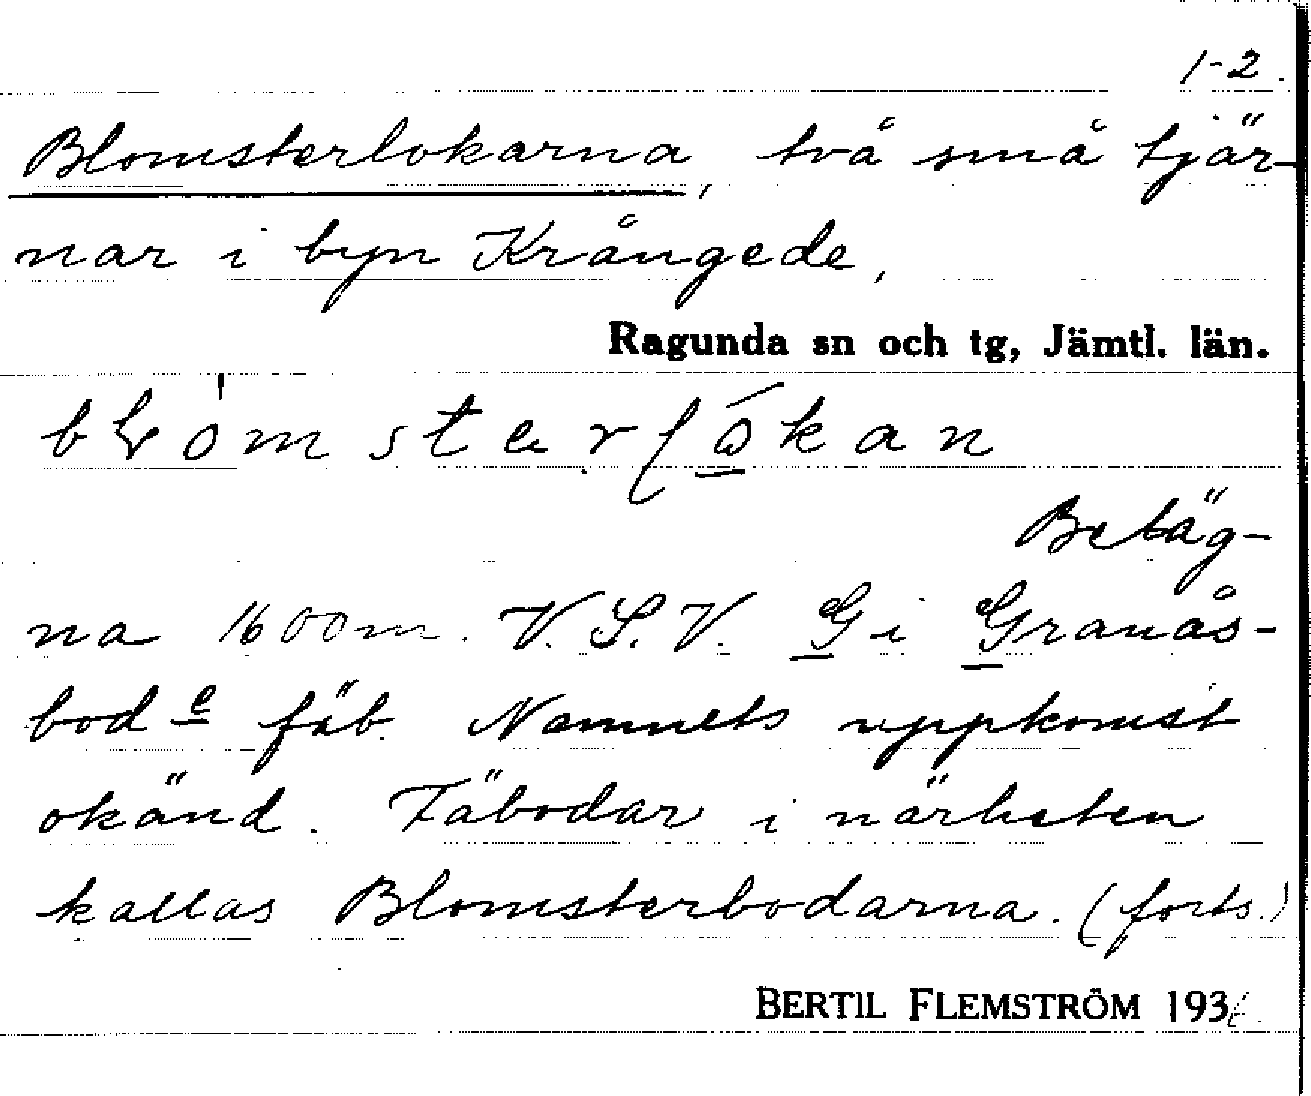 1-2.
Blomsterlokarna, två små tjär-
nar i byn Krångede,
Ragunda sn och tg, Jämtl. län.
Beläg-
na 1600 m. V.S.V. G i Granås-
bod e fäb. Namnets uppkomst
okänd. Fäbodar i närheten
kallas Blomsterbodarna. (forts.)
BERTIL FLEMSTRÖM 1936